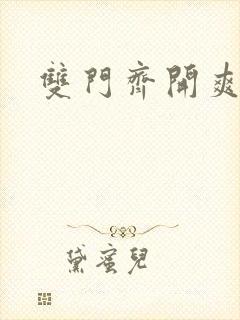 雙門齊開爽
黛蜜兒